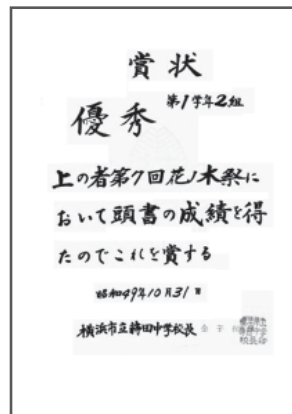 賞状
第1学年2組
優秀
上の者第7回花ノ木祭に
おいて頭書の成績を得
たのでこれを賞する
昭和49年10月31日
横浜市立蒔田中学校長 金子